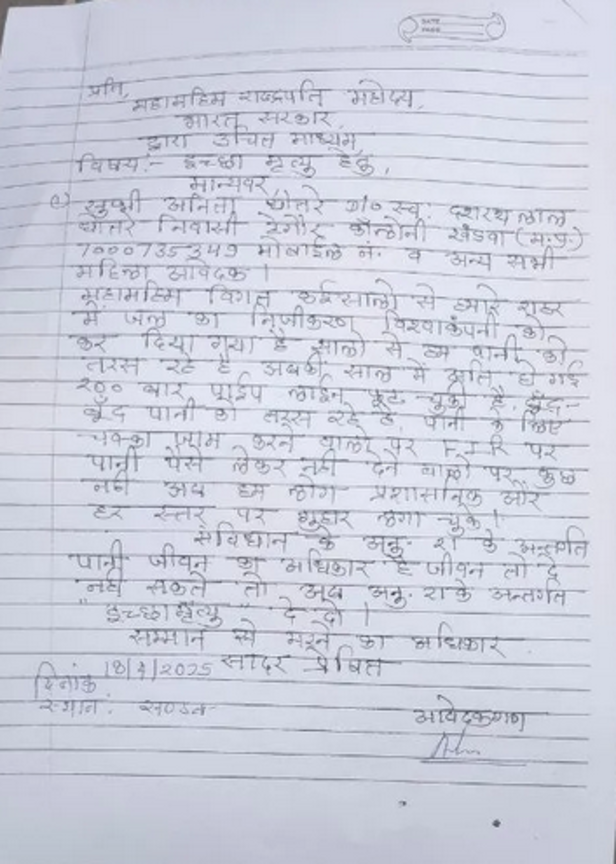 DATE
PAGE
प्रति,
महामहिम राष्ट्रपति महोदय,
भारत सरकार,
द्वारा उचित माध्यम,
विषय:- इच्छा मृत्यु हेतु,
मान्यवर,
सुश्री अनिता धोत्रे D/O स्व. दशरथ लाल
धोत्रे निवासी टैगोर कॉलोनी खंडवा (म.प्र.)
7000735349 मोबाईल नं. व अन्य सभी
महिला आवेदक।
महामहिम विगत कईसालो से हमारे शहर
में जल का निजीकरण विश्वाकंपनी को
कर दिया गया है सालो से हम पानी को
तरस रहे है अबकी साल में अति हो गई
200 बार पाईप लाईन फूट चुकी है. बूँद-
बूँद पानी को तरस रहे है. पानी के लिए
चक्का जाम करने वालो पर F.I.R पर
पानी पैसे लेकर नही देने वालो पर कुछ
नही अब हम लोग प्रशासनिक और
हर स्तर पर गुहार लगा चुके।
संविधान के अनु. 21 के अन्तर्गत
पानी जीवन का अधिकार है जीवन तो दे
नही सकते तो अब अनु. 21 के अन्तर्गत
"इच्छामृत्यु" दे दो।
सम्मान से मरने का अधिकार
सादर प्रेषित
दिनांक 18/4/2025
स्थान: खण्डवा
आवेदकगण